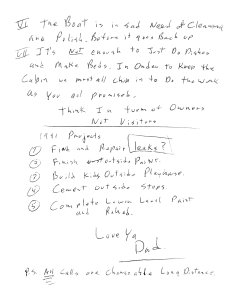 VI The Boat is in sad Need of Cleaning
And Polish. Before it goes Back up
VII IT's Not enough to Just Do Dishes
and Make Beds. In Order to Keep the
Cabin we must all chip in to Do the work
As you all promised.
Think In term of Owners
Not Visitors
1991 Projects
① Find and Repair leaks?
② Finish outside Paint.
③ Build Kids Outside Playhouse.
④ Cement outside steps.
⑤ Complete Lower Level Paint
and Rehab.
Love Ya
Dad
P.S. All Calls are Chargeable Long Distance.